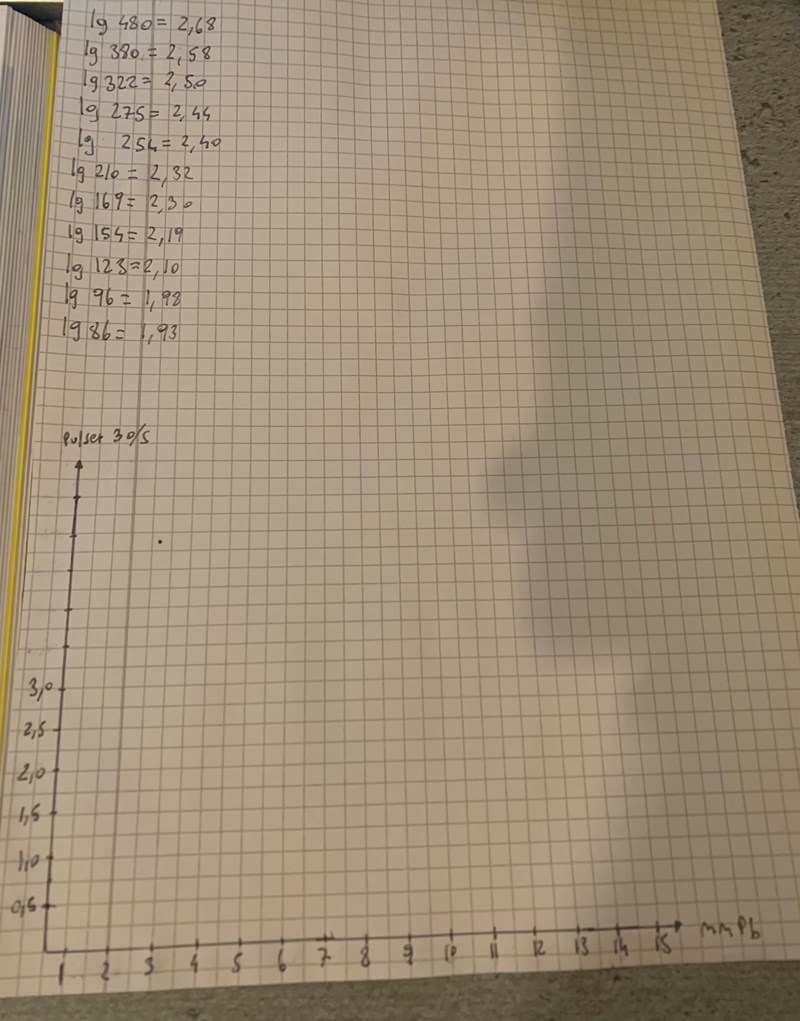 lg 480 = 2,68
lg 380 = 2,58
lg 322 = 2,50
lg 275 = 2,44
lg 254 = 2,40
lg 210 = 2,32
lg 169 = 2,30
lg 154 = 2,19
lg 123 = 2,10
lg 96 = 1,98
lg 86 = 1,93
Pulser 30/s
3,0
2,5
2,0
1,5
1,0
0,5
1 2 3 4 5 6 7 8 9 10 11 12 13 14 15 mm Pb